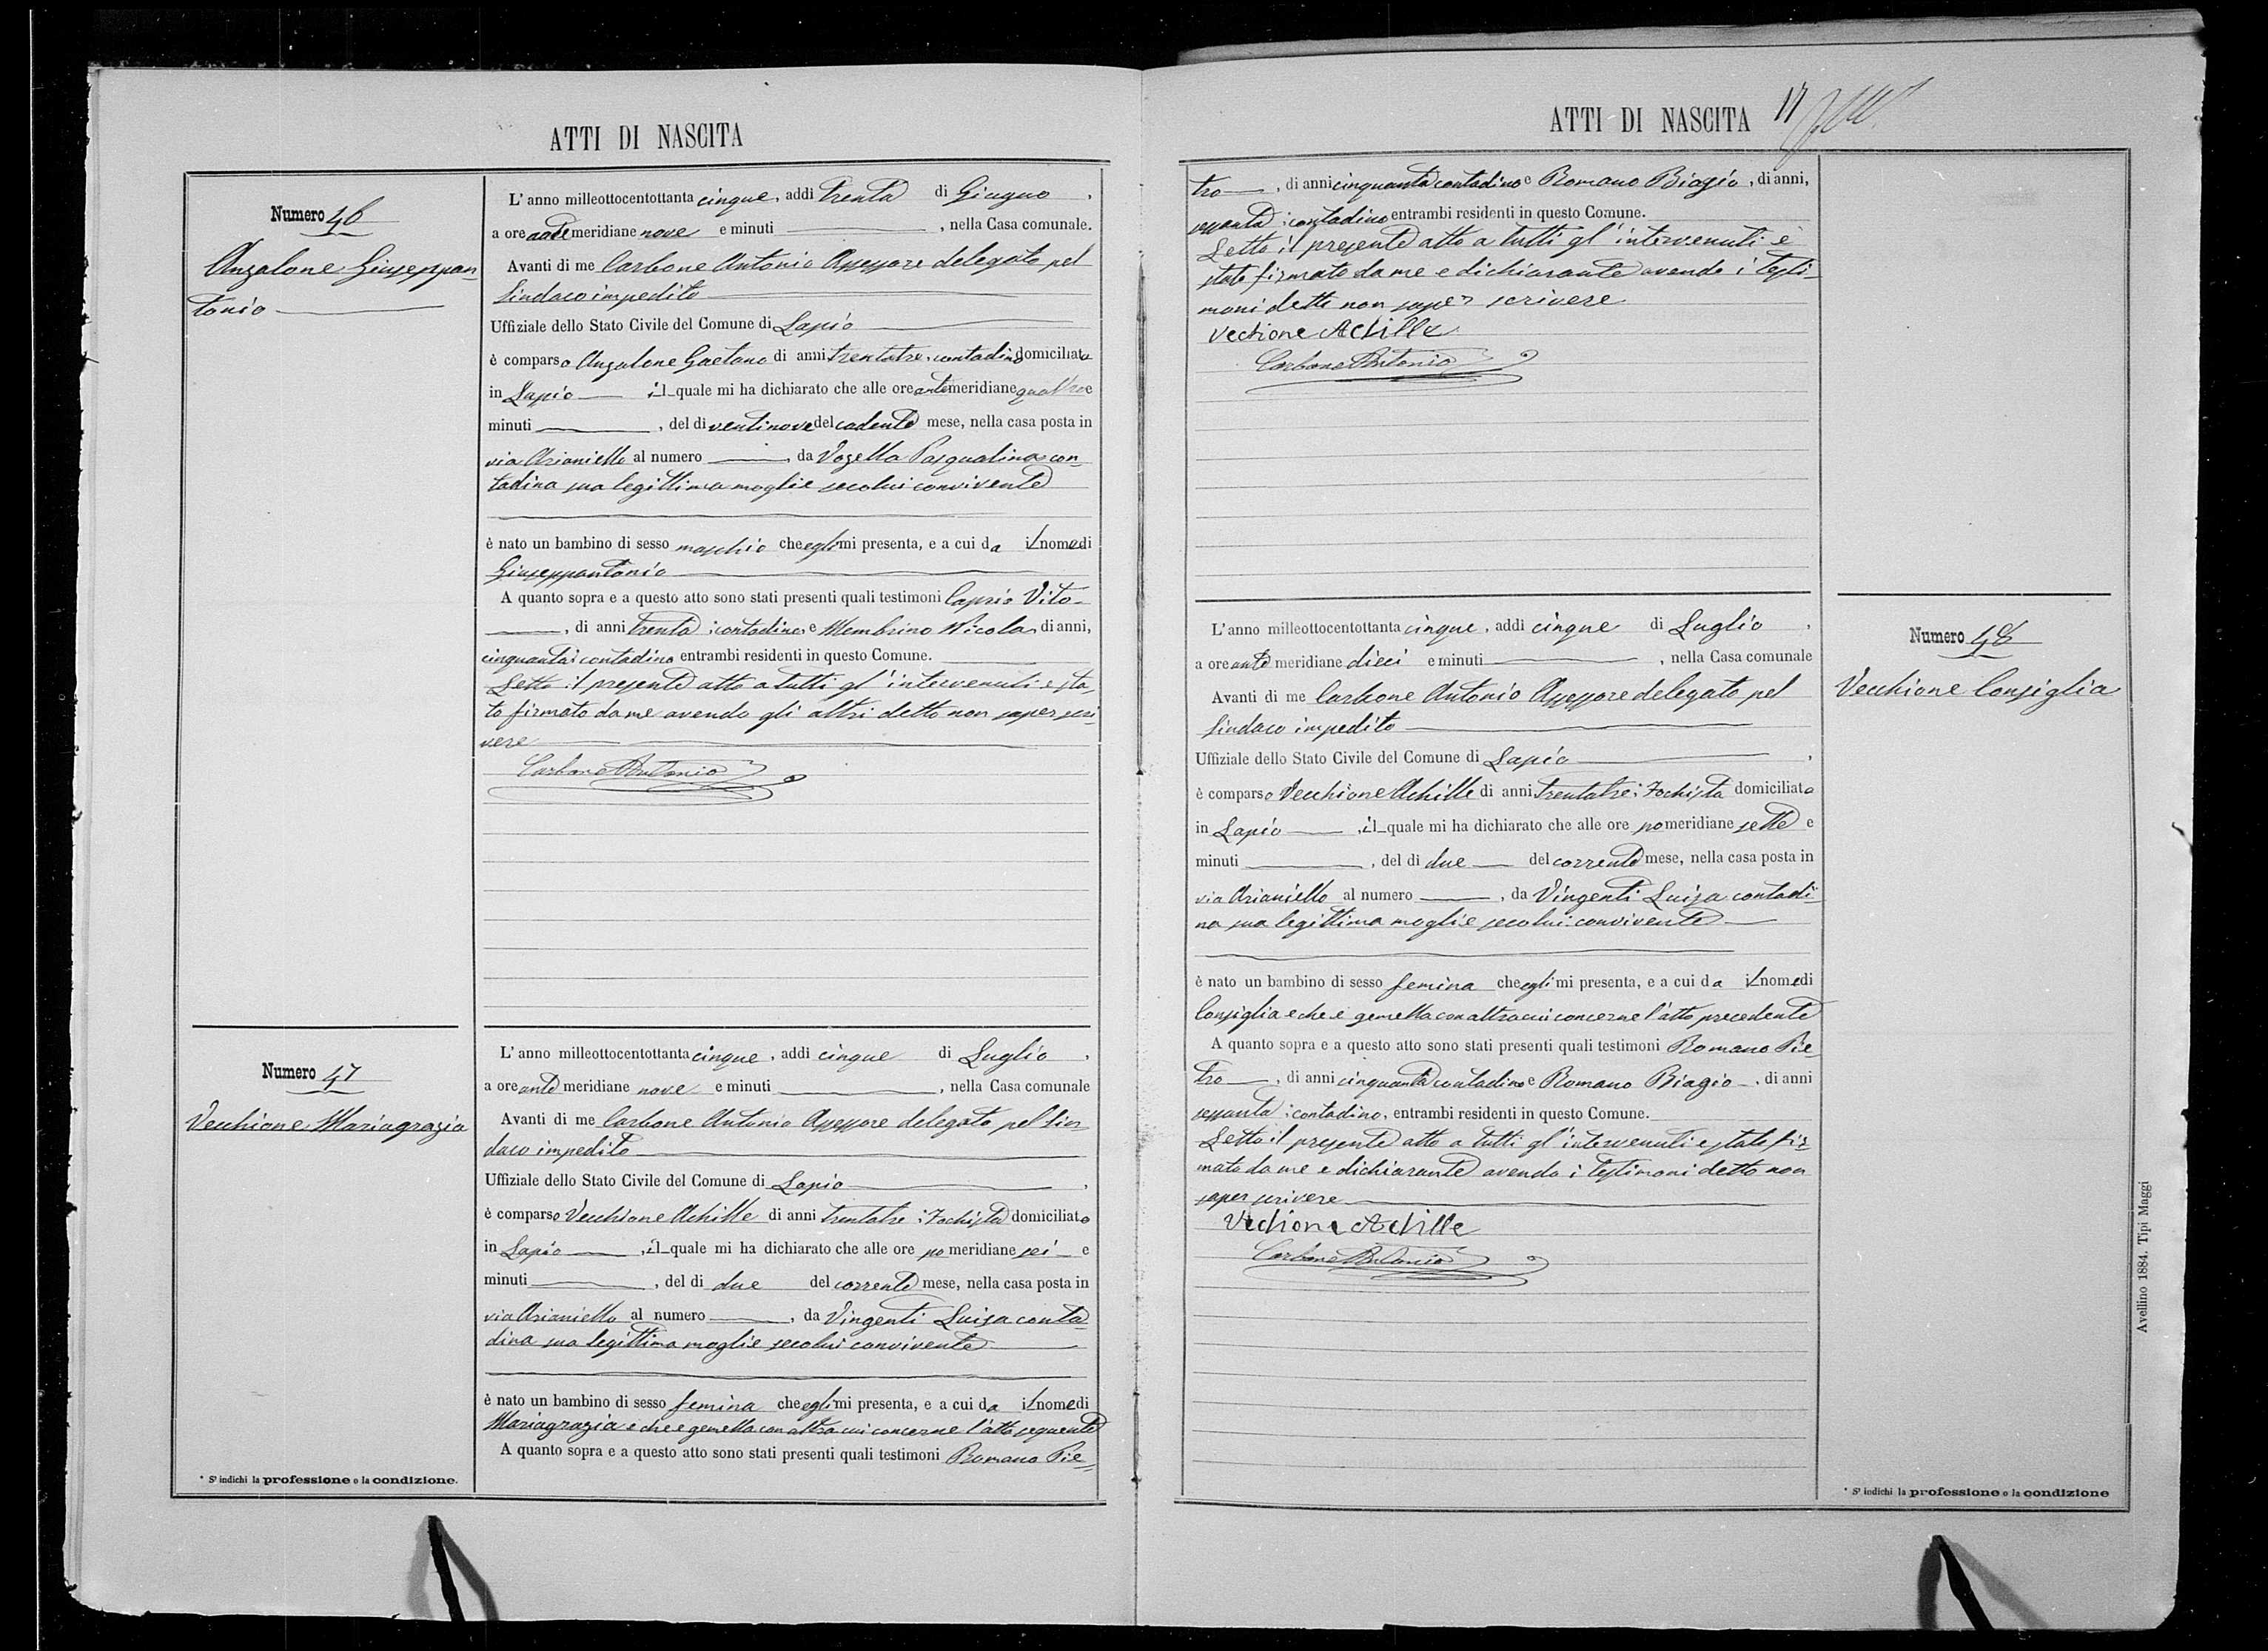 ATTI DI NASCITA
Numero 46
Anzalone Giuseppan-
tonio
L'anno milleottocentottanta cinque, addì trenta di Giugno,
a ore ante meridiane nove e minuti , nella Casa comunale.
Avanti di me Carbone Antonio Assessore delegato pel
Sindaco impedito
Uffiziale dello Stato Civile del Comune di Lapio
è comparso Anzalone Gaetano di anni trentatre, contadino domiciliato
in Lapio il quale mi ha dichiarato che alle ore antemeridiane quattro e
minuti , del dì ventinove del cadente mese, nella casa posta in
via Arianiello al numero , da Vozella Pasqualina con-
tadina sua legittima moglie secolui convivente
è nato un bambino di sesso maschio che egli mi presenta, e a cui da il nome di
Giuseppantonio
A quanto sopra e a questo atto sono stati presenti quali testimoni Caprio Vito
, di anni trenta, contadino, e Membrino Nicola, di anni,
cinquanta, contadino entrambi residenti in questo Comune.
Letto il presente atto a tutti gl'intervenuti è sta-
to firmato da me avendo gli altri detto non saper scri-
vere
Carbone Antonio
Numero 47
Vecchione Mariagrazia
L'anno milleottocentottanta cinque, addì cinque di Luglio,
a ore ante meridiane nove e minuti , nella Casa comunale
Avanti di me Carbone Antonio Assessore delegato pel Sin-
daco impedito
Uffiziale dello Stato Civile del Comune di Lapio ,
è comparso Vecchione Achille di anni trentatre, Fochista domiciliato
in Lapio , il quale mi ha dichiarato che alle ore po meridiane sei e
minuti , del dì due del corrente mese, nella casa posta in
via Arianiello al numero , da Vingenti Luisa conta
dina sua legittima moglie secolui convivente
è nato un bambino di sesso femina che egli mi presenta, e a cui da il nome di
Mariagrazia e che e gemella con altra cui concerne l'atto seguente
A quanto sopra e a questo atto sono stati presenti quali testimoni Romano Pie-
* S'indichi la professione o la condizione.
ATTI DI NASCITA 17
tro , di anni cinquanta contadino e Romano Biagio, di anni,
sessanta, contadino entrambi residenti in questo Comune.
Letto il presente atto a tutti gl'intervenuti è
stato firmato da me e dichiarante avendo i testi-
moni detto non saper scrivere
Vechione Achille
Carbone Antonio
Numero 48
Vecchione Consiglia
L'anno milleottocentottanta cinque, addì cinque di Luglio ,
a ore ante meridiane dieci e minuti , nella Casa comunale
Avanti di me Carbone Antonio Assessore delegato pel
Sindaco impedito
Uffiziale dello Stato Civile del Comune di Lapio ,
è comparso Vecchione Achille di anni trentatre, Fochista domiciliato
in Lapio , il quale mi ha dichiarato che alle ore po meridiane sette e
minuti , del dì due del corrente mese, nella casa posta in
via Arianiello al numero , da Vingenti Luisa contadi-
na sua legittima moglie secolui convivente
è nato un bambino di sesso femina che egli mi presenta, e a cui da il nome di
Consiglia e che e gemella con altra cui concerne l'atto precedente
A quanto sopra e a questo atto sono stati presenti quali testimoni Romano Pie-
tro , di anni cinquanta contadino e Romano Biagio , di anni
sessanta, contadino, entrambi residenti in questo Comune.
Letto il presente atto a tutti gl'intervenuti e stato fir-
mato da me e dichiarante avendo i testimoni detto non
saper scrivere
Vechione Achille
Carbone Antonio
* S'indichi la professione o la condizione
Avellino 1884. Tipi Maggi